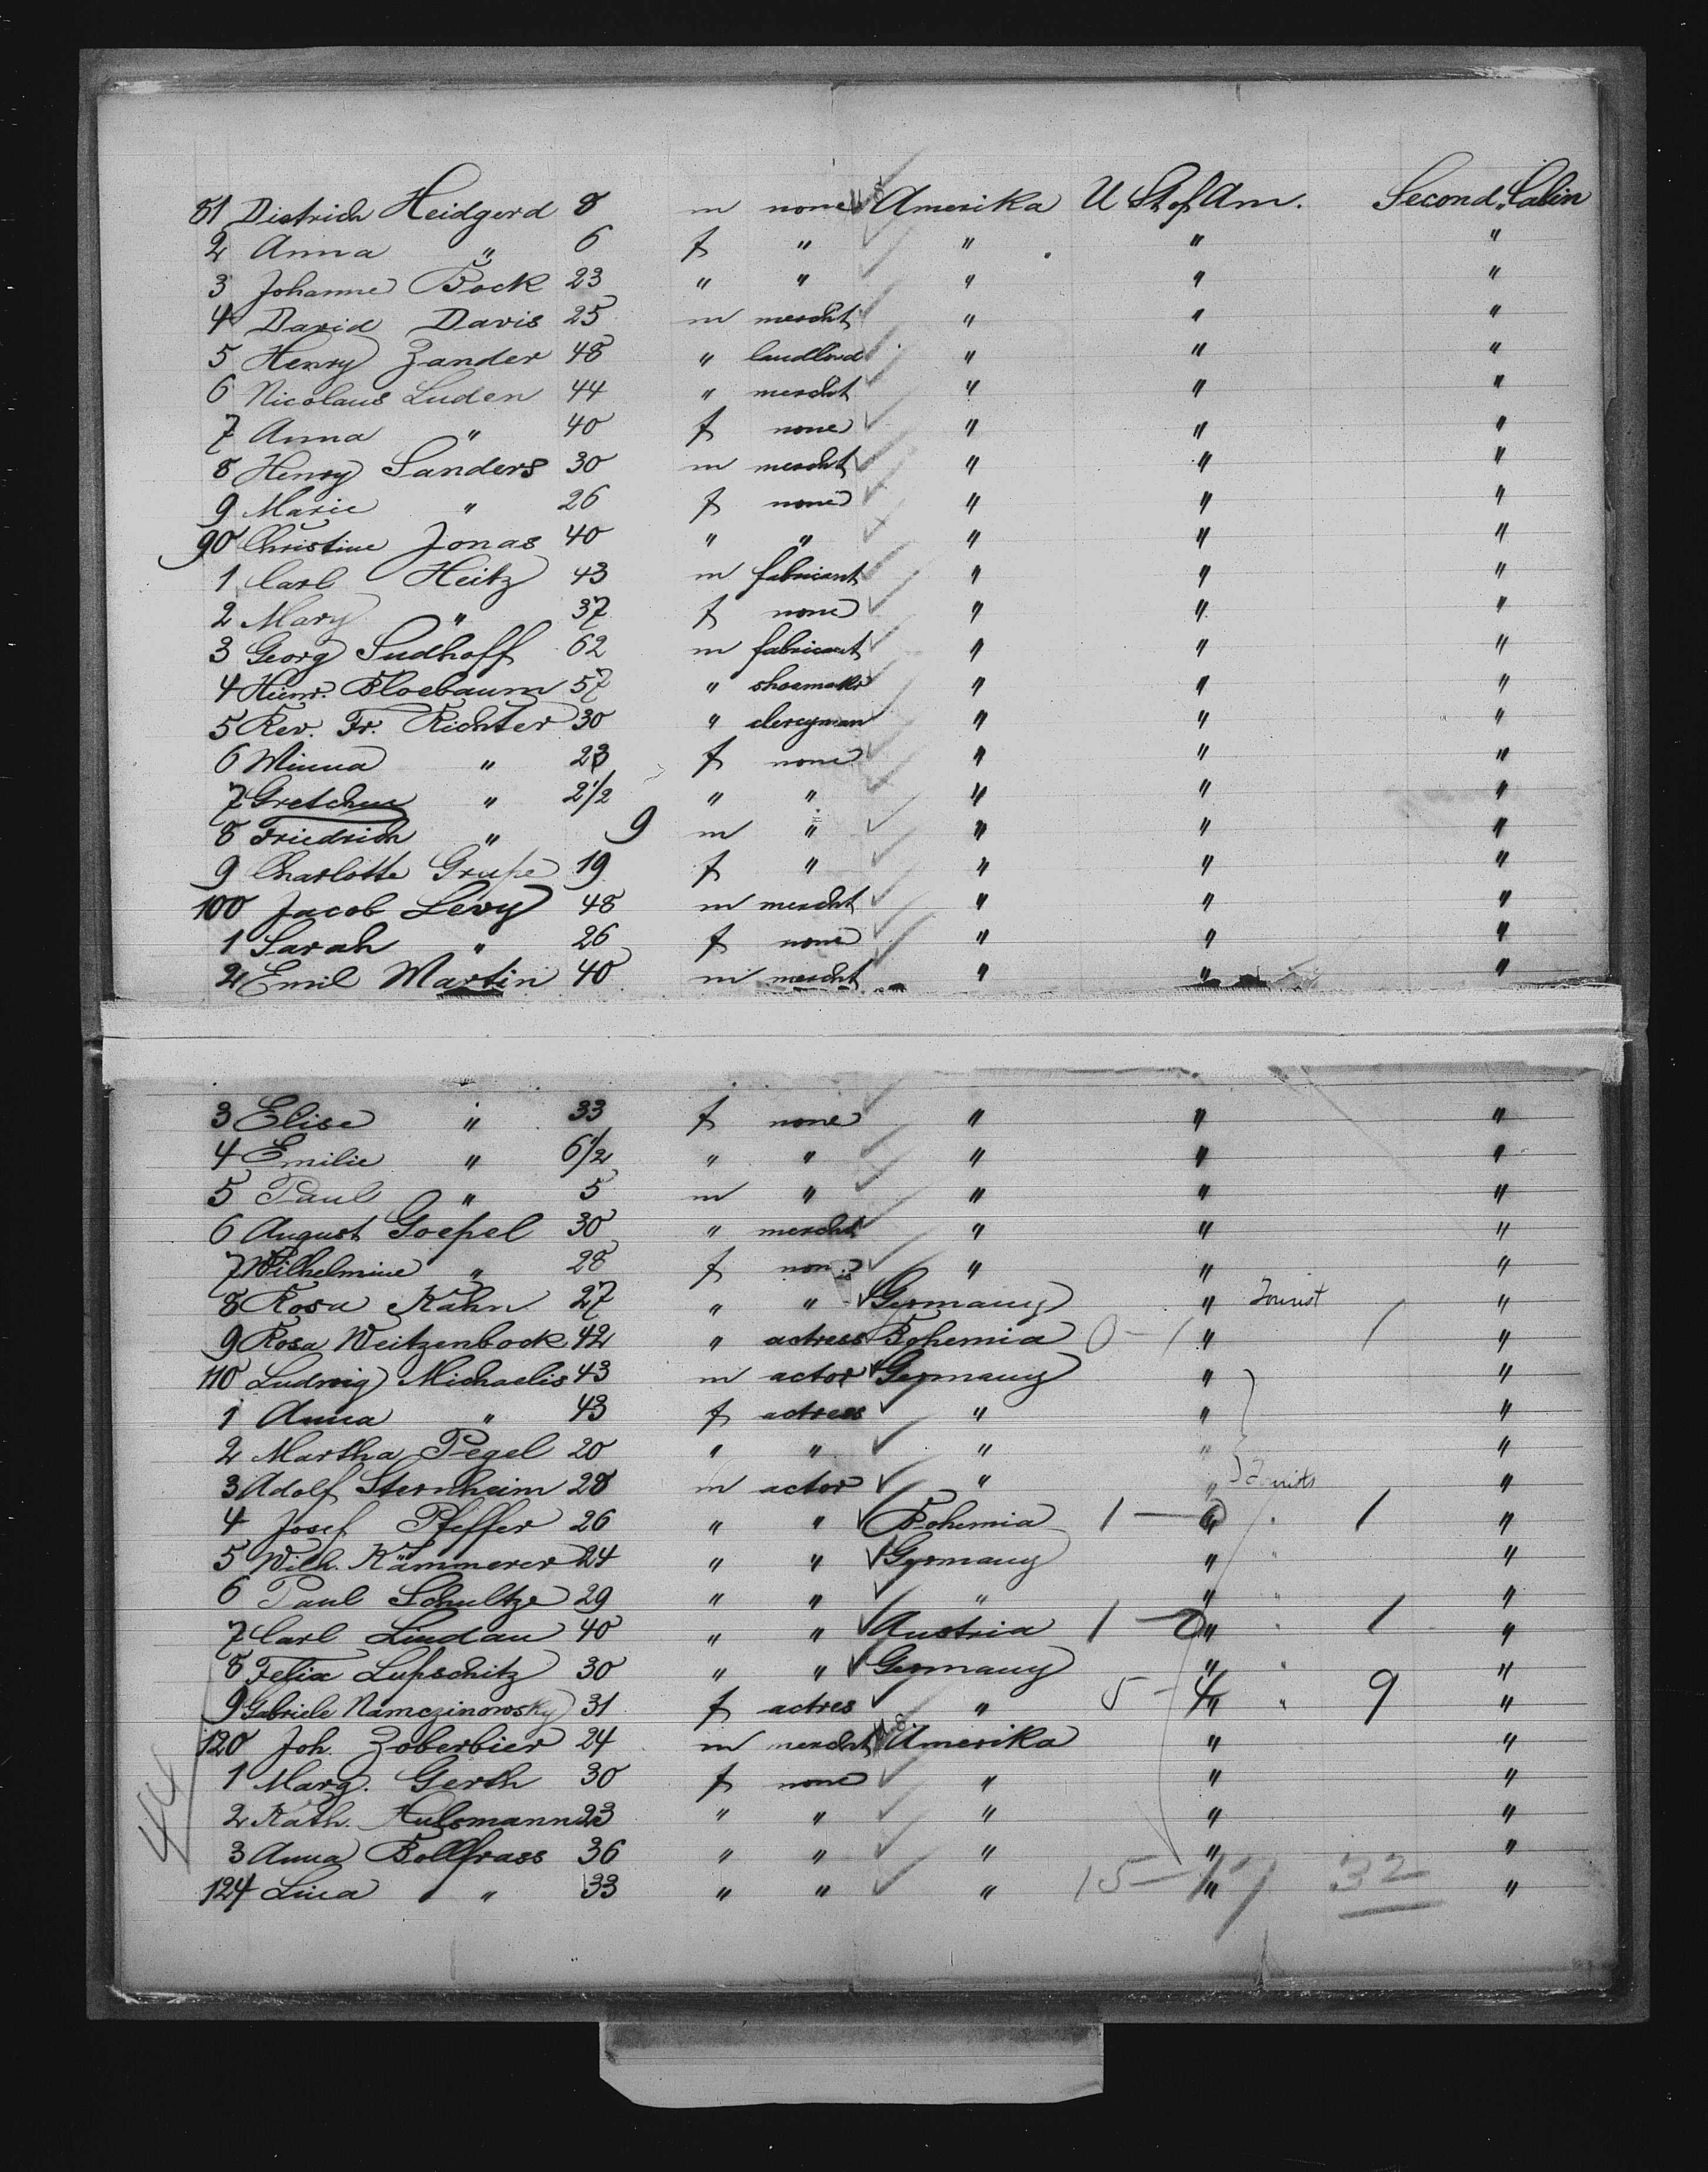 81 Dietrich Heidgerd 8 m none U.S. Amerika U St of Am. Second Cabin
2 Anna " 6 f " " " "
3 Johanne Bock 23 " " " " "
4 David Davis 25 m mercht " " "
5 Henry Zander 48 " landlord " " "
6 Nicolaus Luden 44 " mercht " " "
7 Anna " 40 f none " " "
8 Henry Sanders 30 m mercht " " "
9 Marie " 26 f none " " "
90 Christine Jonas 40 " " " " "
1 Carl Heitz 43 m fabricant " " "
2 Mary " 37 f none " " "
3 Georg Sudhoff 62 m fabricant " " "
4 Heinr. Bloebaum 57 " shoemakr " " "
5 Rev. Fr. Richter 30 " clercyman " " "
6 Minna " 23 f none " " "
7 Gretchen " 2 1/2 " " " " "
8 Friedrich " 9 m " " " "
9 Charlotte Grupe 19 f " " " "
100 Jacob Levy 48 m mercht " " "
1 Sarah " 26 f none " " "
2 Emil Martin 40 m mercht " " "
3 Elise " 33 f none " " "
4 Emilie " 6 1/2 " " " " "
5 Paul " 5 m " " " "
6 August Goepel 30 " mercht " " "
7 Wilhelmine " 28 f none " " "
8 Rosa Kahn 27 " " Germany " Tourist "
9 Rosa Weitzenbock 42 " actress Bohemia 0 - 1 " 1 "
110 Ludwig Michaelis 43 m actor Germany " "
1 Anna " 43 f actress " " "
2 Martha Pegel 20 " " " " "
3 Adolf Sternheim 28 m actor " " Tourists "
4 Josef Pfeffer 26 " " Bohemia 1 - 0 " 1 "
5 Wilh. Kämmerer 24 " " Germany " "
6 Paul Schultze 29 " " " " "
7 Carl Lindau 40 " " Austria 1 - 0 " 1 "
8 Felix Lupschitz 30 " " Germany " "
9 Gabriele Namczinowsky 31 f actres " 5 - 4 " 9 "
120 Joh. Zoberbier 24 m mercht U.S. Amerika " "
1 Marg. Gerth 30 f none " " "
2 Kath. Hulsmann 23 " " " " "
3 Anna Bollfrass 36 " " " " "
124 Lina " 33 " " " 15 - 17 " 32 "
44